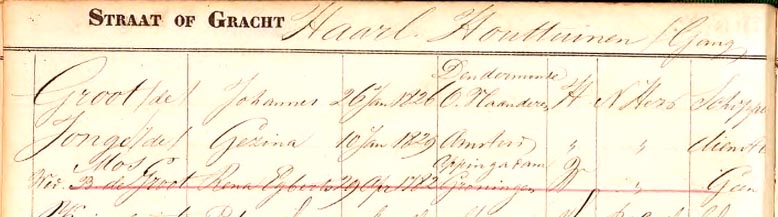 STRAAT OF GRACHT Haarl. Houttuinen / Gang
Dendermonde
Groot /de/ Johannes 26 Jan 1826 O. Vlaanderen H N Herv Schipper
Jonge /de/ Gezina 10 Jan 1829 Amsterd " " dienstb
Mos Appingadam
Wed. B de Groot Rena Egberts 29 Apr 1782 Groningen W " Geen